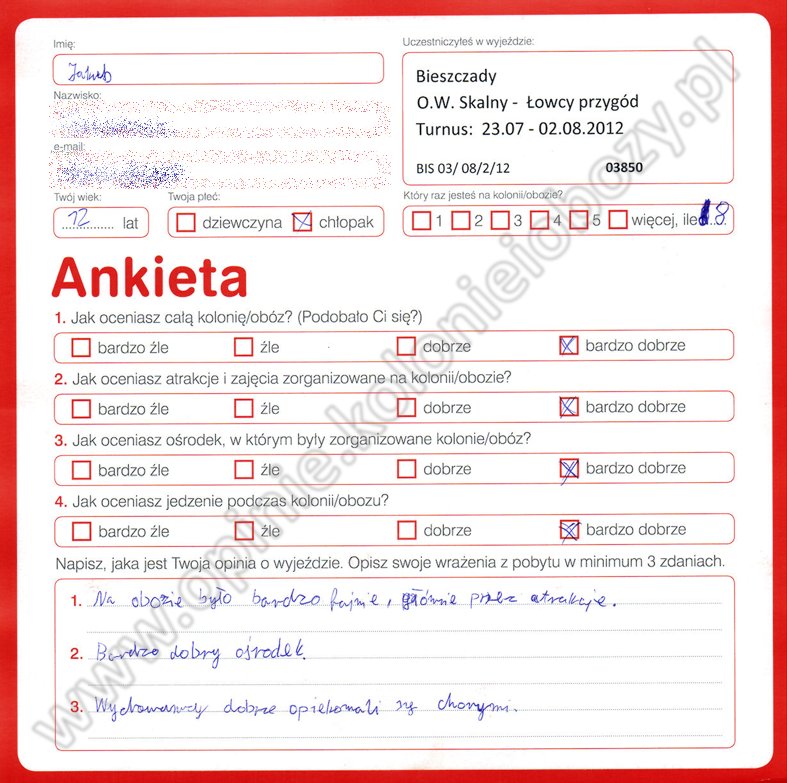 Imię:
Jakub
Uczestniczyłeś w wyjeździe:
Bieszczady
O.W. Skalny - Łowcy przygód
Turnus: 23.07 - 02.08.2012
BIS 03/ 08/2/12 03850
Nazwisko:
e-mail:
Twój wiek:
12 lat
Twoja płeć:
dziewczyna chłopak
Który raz jesteś na kolonii/obozie?
1 2 3 4 5 więcej, ile 8
Ankieta
1. Jak oceniasz całą kolonię/obóz? (Podobało Ci się?)
bardzo źle źle dobrze bardzo dobrze
2. Jak oceniasz atrakcje i zajęcia zorganizowane na kolonii/obozie?
bardzo źle źle dobrze bardzo dobrze
3. Jak oceniasz ośrodek, w którym były zorganizowane kolonie/obóz?
bardzo źle źle dobrze bardzo dobrze
4. Jak oceniasz jedzenie podczas kolonii/obozu?
bardzo źle źle dobrze bardzo dobrze
Napisz, jaka jest Twoja opinia o wyjeździe. Opisz swoje wrażenia z pobytu w minimum 3 zdaniach.
1. Na obozie było bardzo fajnie, głównie przez atrakcje.
2. Bardzo dobry ośrodek.
3. Wychowawcy dobrze opiekowali się chorymi.
www.opinie.kolonieiobozy.pl